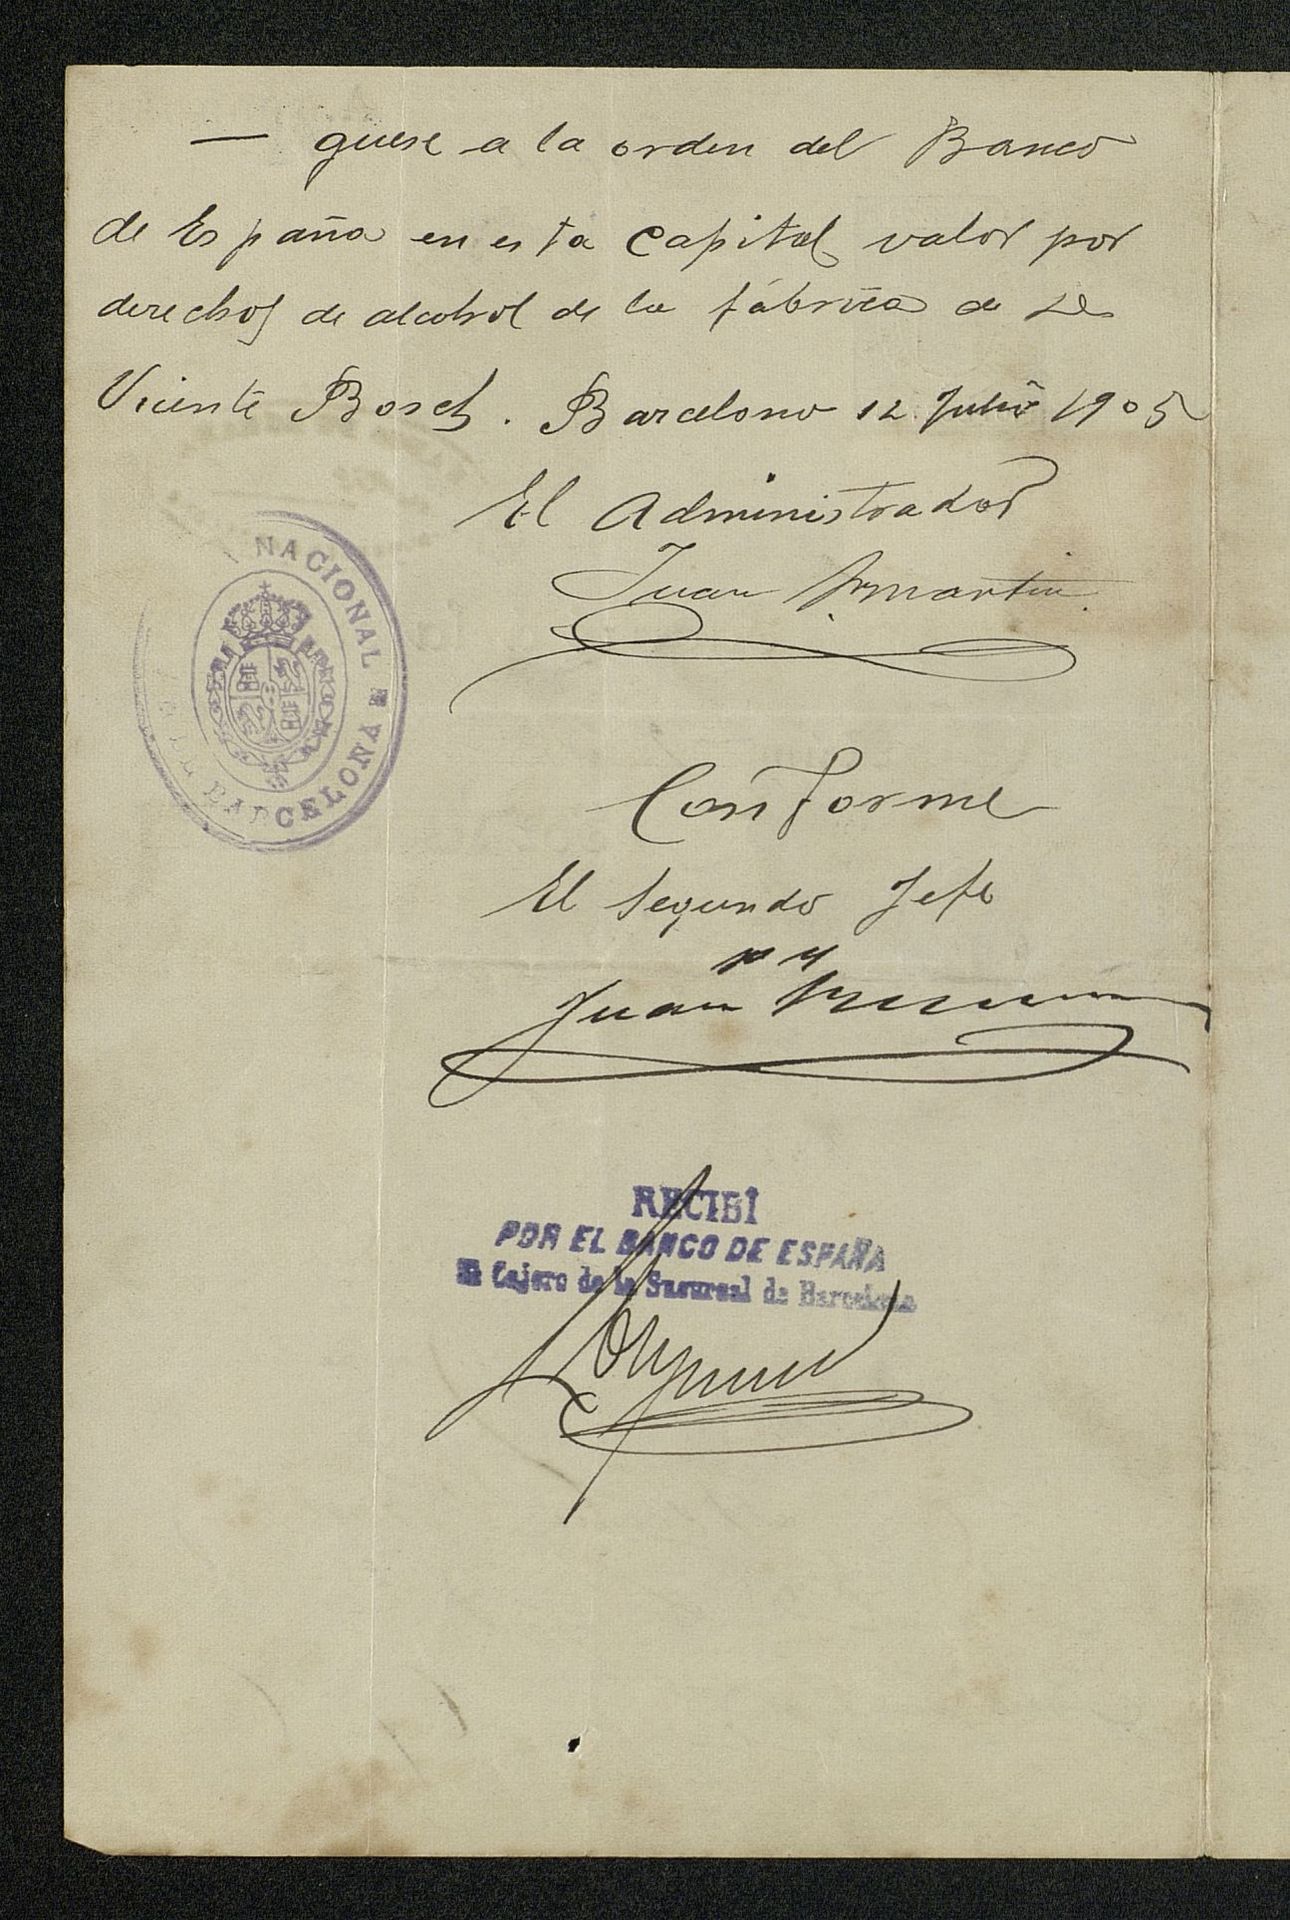 — guese a la orden del Banco
de España en esta Capital valor por
derechos de alcohol de la fábrica de Dn
Vicente Bosch. Barcelona 12 Julio 1905
El Administrador
Juan
NACIONAL
BARCELONA
Conforme
El Segundo Jefe
Juan
RECIBÍ
POR EL BANCO DE ESPAÑA
El Cajero de la Sucursal de Barcelona